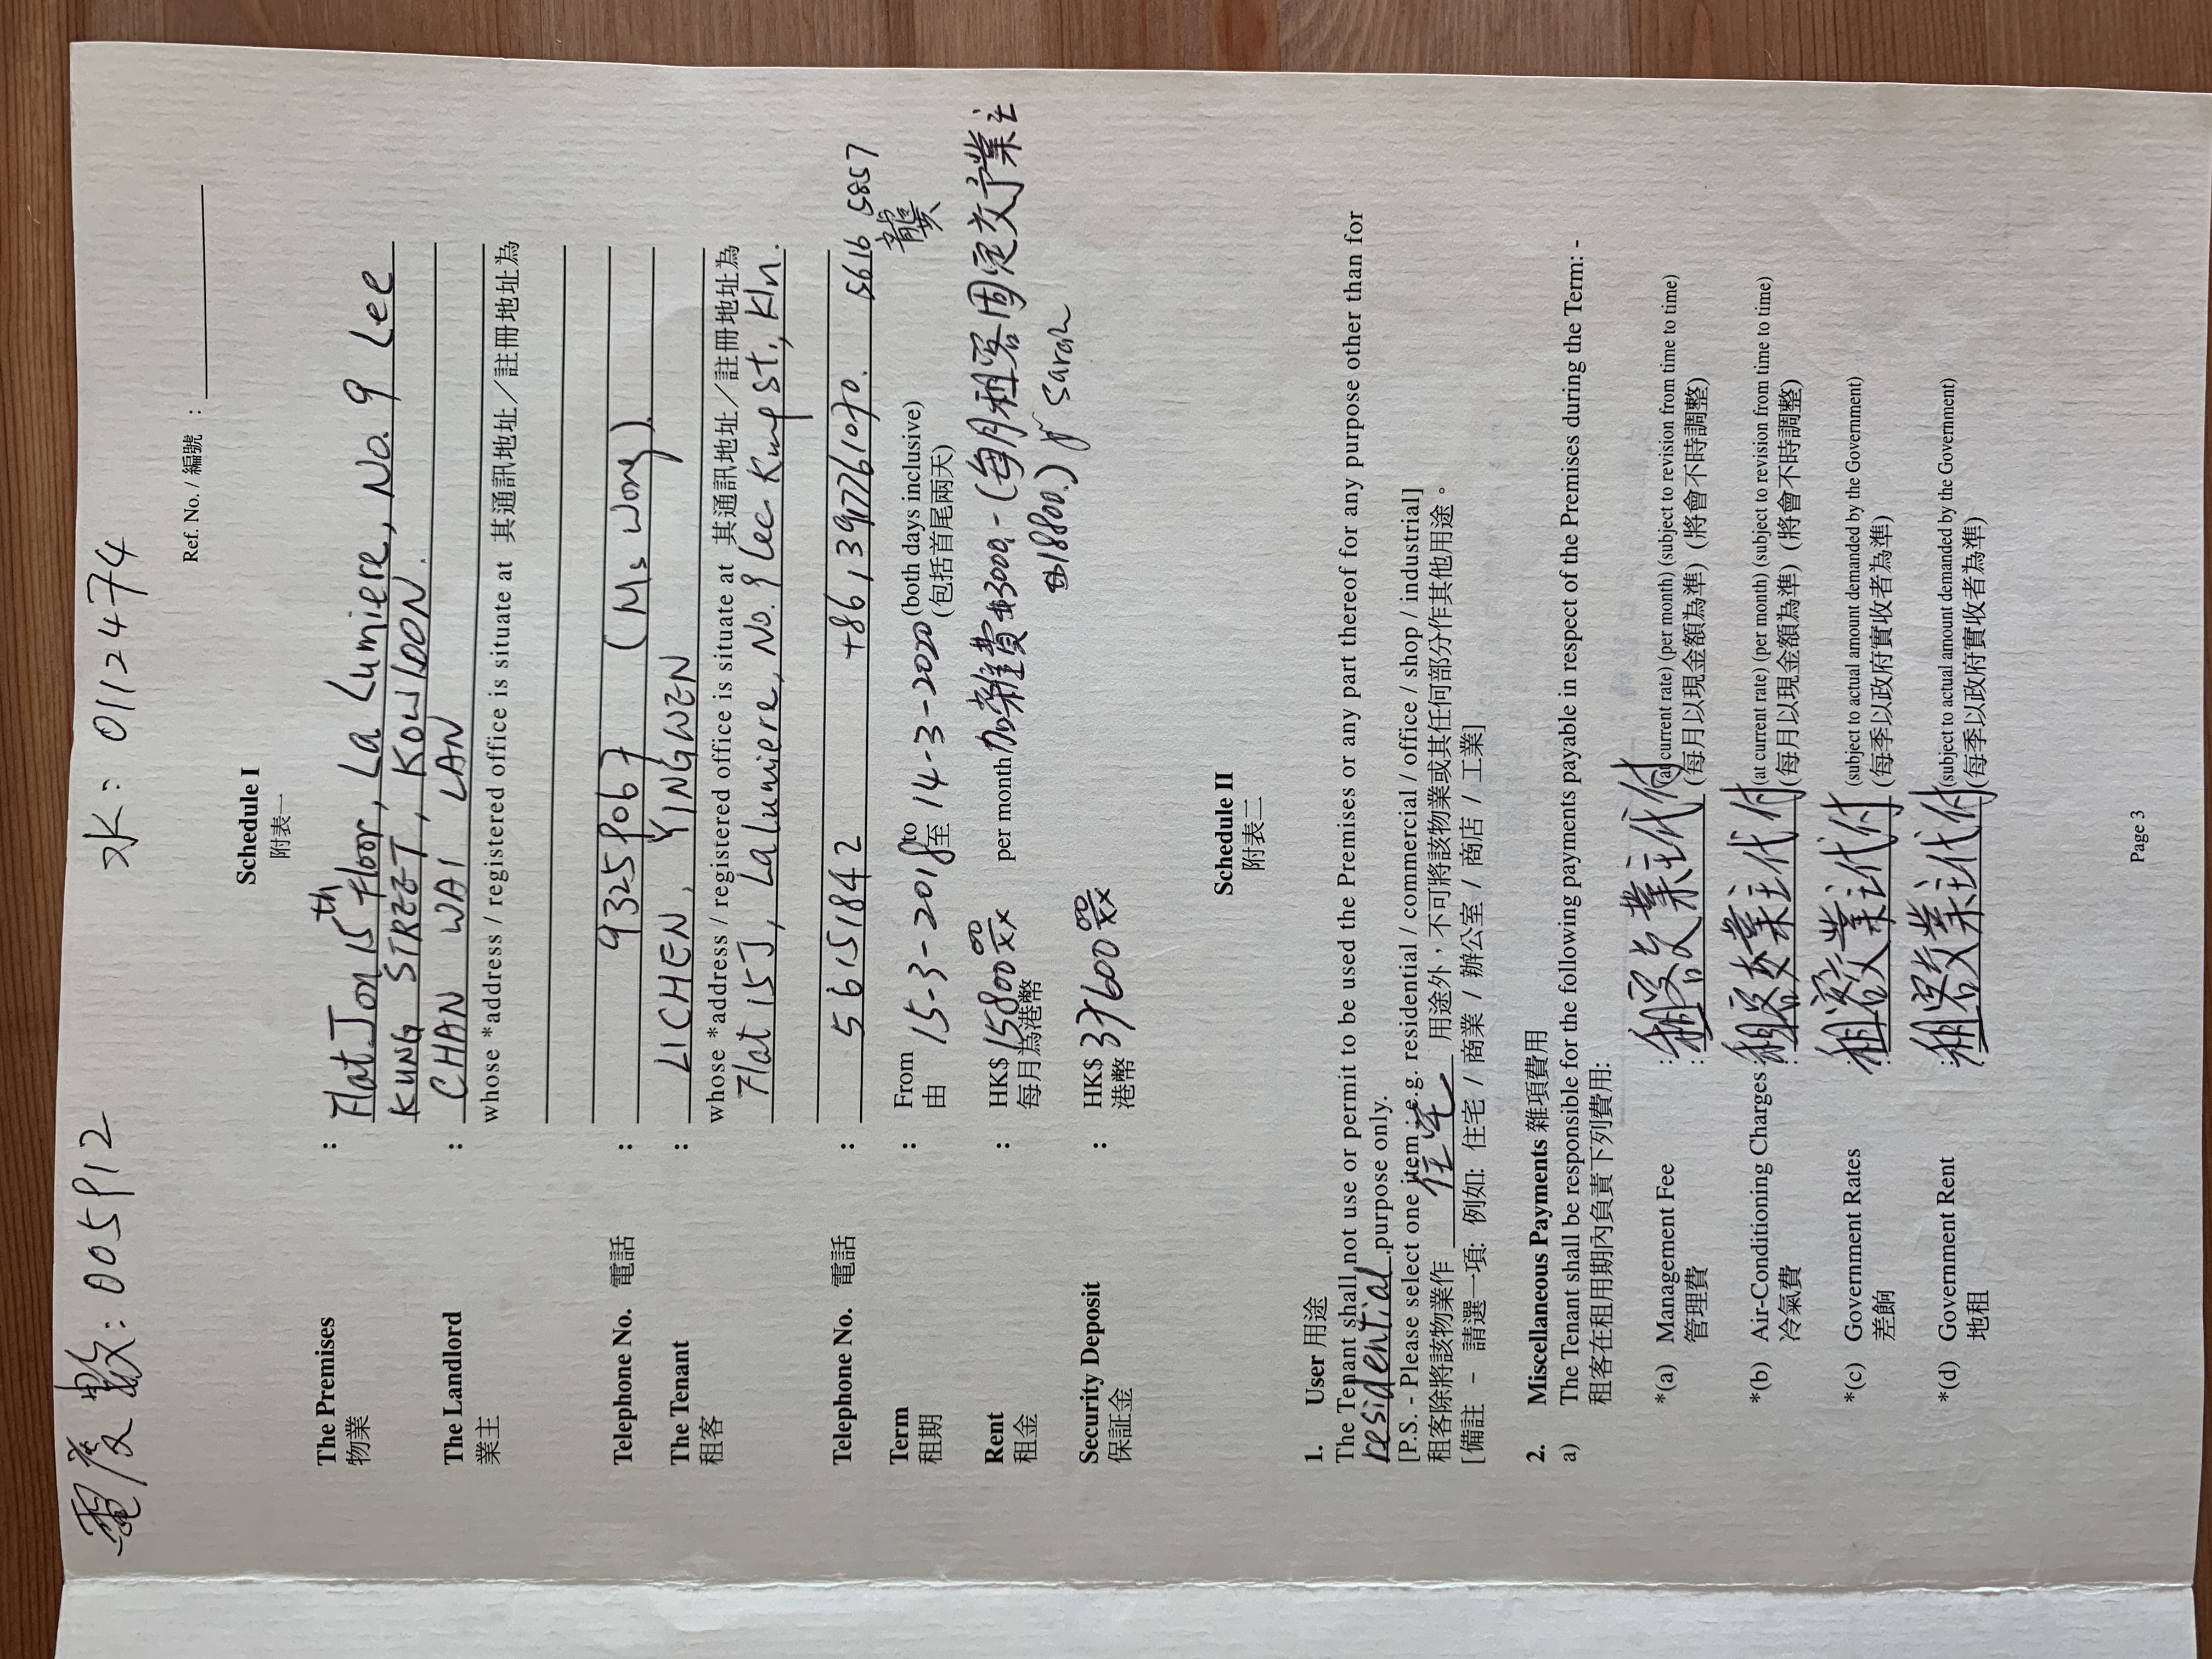 電度數：005912 水：0112474
Ref. No. / 編號 :
Schedule I
附表一
The Premises : Flat J on 15th Floor, La Lumiere, No. 9 Lee
物業 KUNG STREET, KOWLOON.
The Landlord : CHAN WAI LAN
業主 whose *address / registered office is situate at 其通訊地址／註冊地址為
Telephone No. 電話 : 93259067 (Ms Wong).
The Tenant : LI CHEN, YINGWEN
租客 whose *address / registered office is situate at 其通訊地址／註冊地址為
Flat 15J, La Lumiere, No. 9 Lee Kung St., Kln.
Telephone No. 電話 : 56151842 5616 5857
龔
Term : From 15-3-2018 to 14-3-2020 (both days inclusive)
租期 由 至 (包括首尾兩天)
Rent : HK$ 15800 per month 加雜費$3000.-(每月租客固定交予業主
租金 每月為港幣 $18800.) Sarah
Security Deposit : HK$ 37600
保証金 港幣
Schedule II
附表二
1. User 用途
The Tenant shall not use or permit to be used the Premises or any part thereof for any purpose other than for
residential purpose only.
[P.S. - Please select one item : e.g. residential / commercial / office / shop / industrial]
租客除將該物業作 住宅 用途外，不可將該物業或其任何部分作其他用途。
[備註 － 請選一項: 例如: 住宅 / 商業 / 辦公室 / 商店 / 工業]
2. Miscellaneous Payments 雜項費用
a) The Tenant shall be responsible for the following payments payable in respect of the Premises during the Term: -
租客在租用期內負責下列費用:
*(a) Management Fee : 租客交業主代付 (at current rate) (per month) (subject to revision from time to time)
管理費 (每月以現金額為準) (將會不時調整)
*(b) Air-Conditioning Charges : 租客交業主代付 (at current rate) (per month) (subject to revision from time to time)
冷氣費 (每月以現金額為準) (將會不時調整)
*(c) Government Rates : 租客交業主代付 (subject to actual amount demanded by the Government)
差餉 (每季以政府實收者為準)
*(d) Government Rent : 租客交業主代付 (subject to actual amount demanded by the Government)
地租 (每季以政府實收者為準)
Page 3